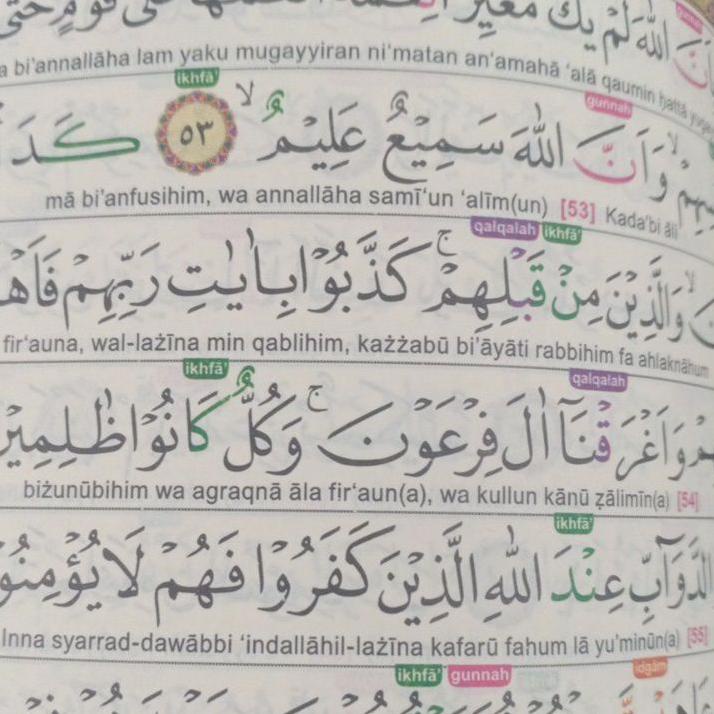 اللّٰهَ لَمْ يَكُ
gunnah
bi'annallāha lam yaku mugayyiran ni'matan an'amahā 'alā qaumin ḥattā
ikhfā' gunnah
وَاَنَّ اللّٰهَ سَمِيْعٌ عَلِيْمٌۙ ٥٣
mā bi'anfusihim, wa annallāha samī'un 'alīm(un) [53] Kada'bi āli
qalqalah ikhfā'
وَالَّذِيْنَ مِنْ قَبْلِهِمْۚ كَذَّبُوْا بِاٰيٰتِ رَبِّهِمْ
fir'auna, wal-lażīna min qablihim, każżabū bi'āyāti rabbihim fa ahlaknāhum
ikhfā' qalqalah
وَاَغْرَقْنَآ اٰلَ فِرْعَوْنَۚ وَكُلٌّ كَانُوْا ظٰلِمِيْنَ
biżunūbihim wa agraqnā āla fir'aun(a), wa kullun kānū ẓālimīn(a) [54]
ikhfā'
الدَّوَاۤبِّ عِنْدَ اللّٰهِ الَّذِيْنَ كَفَرُوْا فَهُمْ لَا يُؤْمِنُوْنَ
Inna syarrad-dawābbi 'indallāhil-lażīna kafarū fahum lā yu'minūn(a) [55]
ikhfā' gunnah idgām